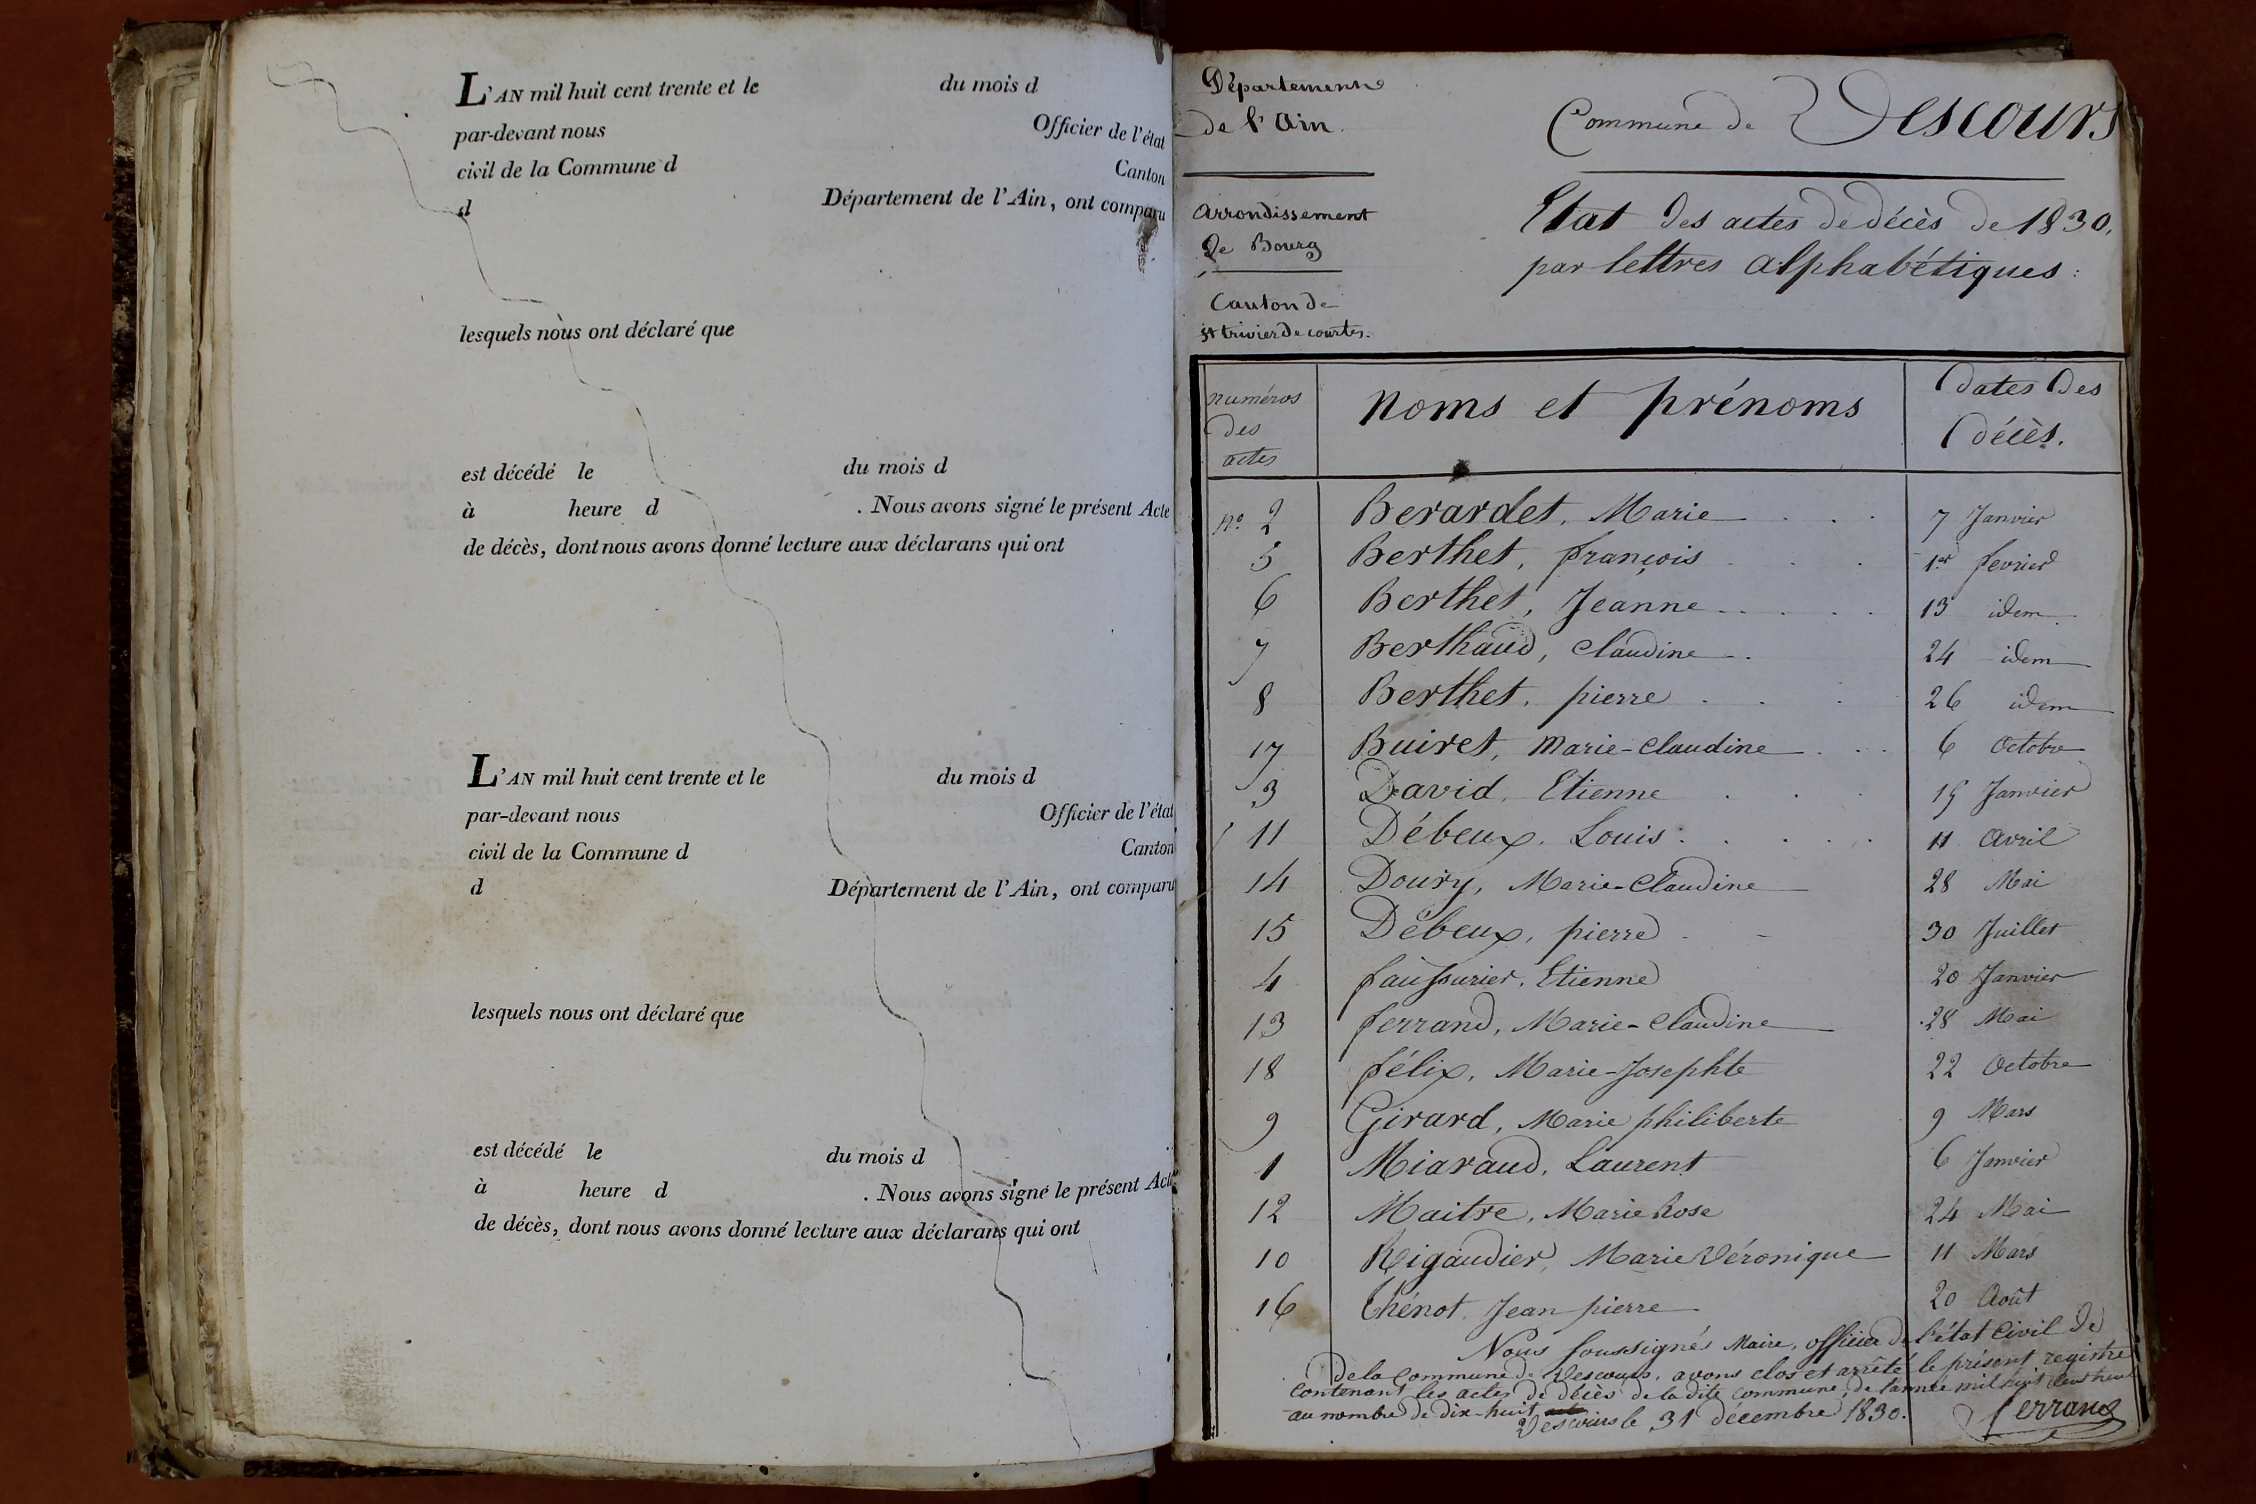 L'AN mil huit cent trente et le du mois d
par-devant nous Officier de l'état
civil de la Commune d Canton
d Département de l'Ain, ont comparu
lesquels nous ont déclaré que
est décédé le du mois d
à heure d . Nous avons signé le présent Acte
de décès, dont nous avons donné lecture aux déclarans qui ont
L'AN mil huit cent trente et le du mois d
par-devant nous Officier de l'état
civil de la Commune d Canton
d Département de l'Ain, ont comparu
lesquels nous ont déclaré que
est décédé le du mois d
à heure d . Nous avons signé le présent Acte
de décès, dont nous avons donné lecture aux déclarans qui ont
Département
de l'Ain.
Arrondissement
de Bourg
Canton de
St trivier de courtes.
Commune de Vescours
Etat des actes de décès de 1830,
par lettres alphabétiques :
numéros
des
actes
Noms et prénoms
dates des
décès.
No. 2 Berardet, Marie 7 Janvier
5 Berthet, françois 1er fevrier
6 Berthet, Jeanne 13 idem
7 Berthaud, Claudine 24 idem
8 Berthet, pierre 26 idem
17 Buiret, Marie-Claudine 6 Octobre
3 David, Etienne 19 Janvier
11 Débeux, Louis 11 Avril
14 Doury, Marie-Claudine 28 Mai
15 Débeux, pierre 30 Juillet
4 faussurier, Etienne 20 Janvier
13 ferrand, Marie-Claudine 28 Mai
18 félix, Marie-Josephte 22 Octobre
9 Girard, Marie philiberte 9 Mars
1 Miaraud, Laurent 6 Janvier
12 Maitre, Marie Rose 24 Mai
10 Rigaudier, Marie Véronique 11 Mars
16 Thénot, Jean pierre 20 Août
Nous soussignés Maire, officier de l'état Civil de
De la Commune de Vescours, avons clos et arrêté le présent registre
Contenant les actes de décès de la dite commune, de l'année mil huit cent trente
au nombre de dix-huit
Vescours le 31 décembre 1830.
ferrand